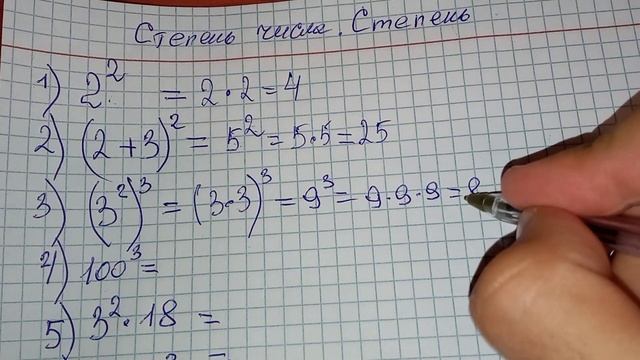 Степень числа. Степень
1) 2² = 2·2=4
2) (2+3)² = 5² = 5·5=25
3) (3²)³ = (3·3)³ = 9³ = 9·9·9 =8
4) 100³=
5) 3²·18 =